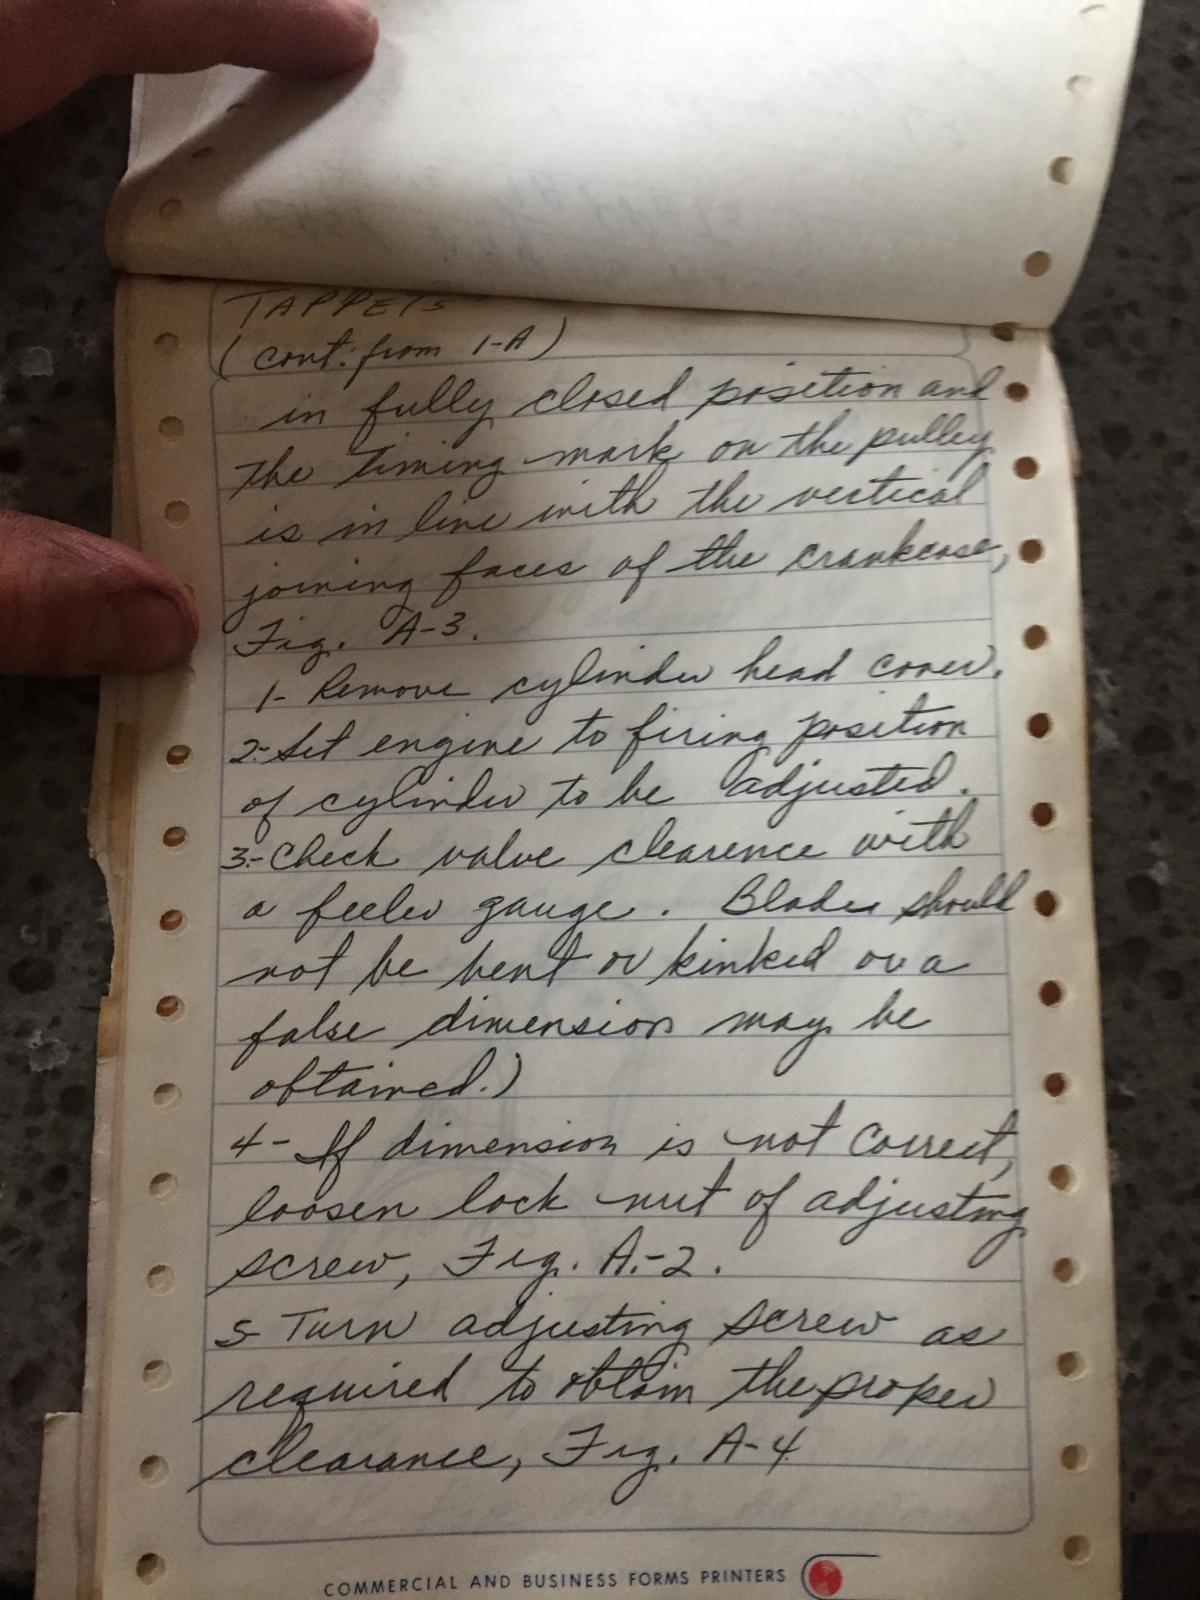 TAPPETS
(cont. from 1-A)
in fully closed position and
the timing mark on the pulley
is in line with the vertical
joining faces of the crankcase,
Fig. A-3.
1- Remove cylinder head cover.
2- Set engine to firing position
of cylinder to be adjusted.
3- Check valve clearence with
a feeler gauge. Blades should
not be bent or kinked or a
false dimension may be
obtained.)
4- If dimension is not correct,
loosen lock nut of adjusting
screw, Fig. A-2.
5- Turn adjusting screw as
required to obtain the proper
clearance, Fig. A-4
COMMERCIAL AND BUSINESS FORMS PRINTERS